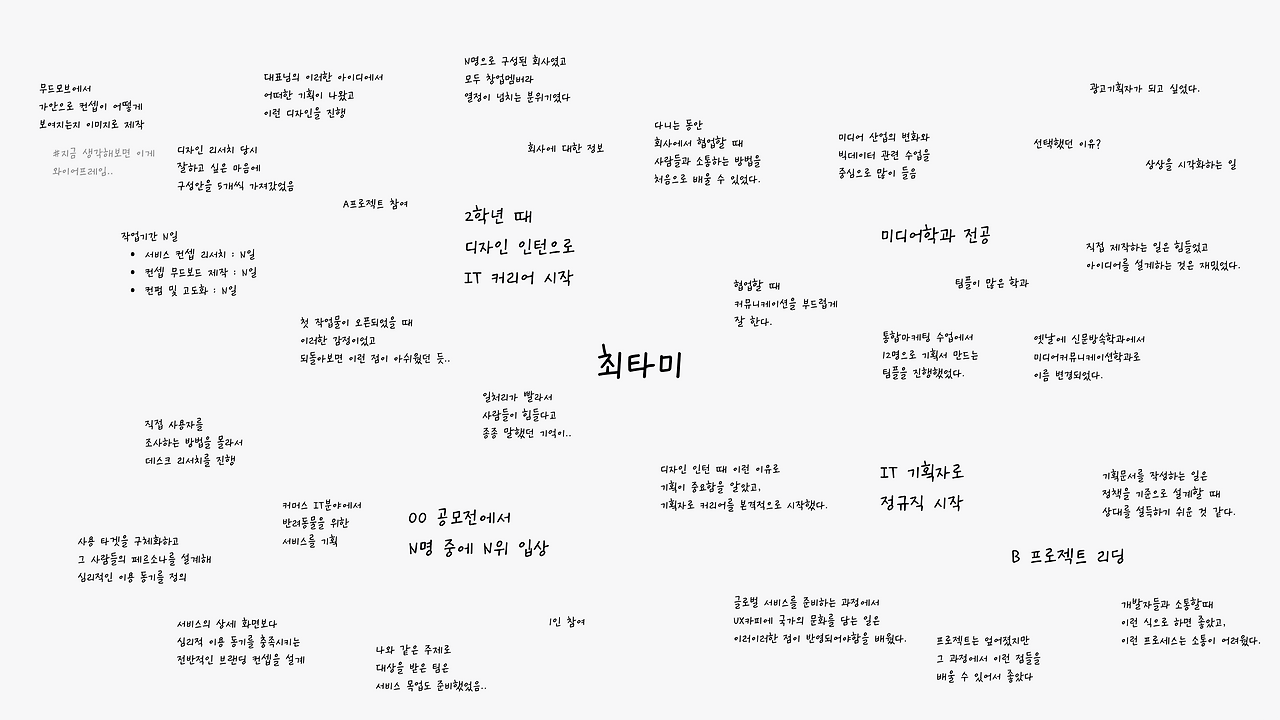 무드모브에서
가안으로 컨셉이 어떻게
보여지는지 이미지로 제작
#지금 생각해보면 이게
와이어프레임..
대표님의 이러한 아이디에서
어떠한 기획이 나왔고
이런 디자인을 진행
N명으로 구성된 회사였고
모두 창업멤버라
열정이 넘치는 분위기였다
디자인 리서치 당시
잘하고 싶은 마음에
구성안을 5개씩 가져갔었음
회사에 대한 정보
A프로젝트 참여
2학년 때
디자인 인턴으로
IT 커리어 시작
작업기간 N일
• 서비스 컨셉 리서치 : N일
• 컨셉 무드보드 제작 : N일
• 컨펌 및 고도화 : N일
첫 작업물이 오픈되었을 때
이러한 감정이었고
되돌아보면 이런 점이 아쉬웠던 듯..
다니는 동안
회사에서 협업할 때
사람들과 소통하는 방법을
처음으로 배울 수 있었다.
미디어 산업의 변화와
빅데이터 관련 수업을
중심으로 많이 들음
광고기획자가 되고 싶었다.
선택했던 이유?
상상을 시각화하는 일
미디어학과 전공
직접 제작하는 일은 힘들었고
아이디어를 설계하는 것은 재밌었다.
팀플이 많은 학과
협업할 때
커뮤니케이션을 부드럽게
잘 한다.
통합마케팅 수업에서
12명으로 기획서 만드는
팀플을 진행했었다.
옛날에 신문방송학과에서
미디어커뮤니케이션학과로
이름 변경되었다.
최타미
일처리가 빨라서
사람들이 힘들다고
종종 말했던 기억이..
직접 사용자를
조사하는 방법을 몰라서
데스크 리서치를 진행
커머스 IT분야에서
반려동물을 위한
서비스를 기획
00 공모전에서
N명 중에 N위 입상
사용 타겟을 구체화하고
그 사람들의 페르소나를 설계해
심리적인 이용 동기를 정의
서비스의 상세 화면보다
심리적 이용 동기를 충족시키는
전반적인 브랜딩 컨셉을 설계
1인 참여
나와 같은 주제로
대상을 받은 팀은
서비스 목업도 준비했었음..
디자인 인턴 때 이런 이유로
기획이 중요함을 알았고,
기획자로 커리어를 본격적으로 시작했다.
IT 기획자로
정규직 시작
기획문서를 작성하는 일은
정책을 기준으로 설계할 때
상대를 설득하기 쉬운 것 같다.
B 프로젝트 리딩
글로벌 서비스를 준비하는 과정에서
UX카피에 국가의 문화를 담는 일은
이러이러한 점이 반영되어야함을 배웠다.
프로젝트는 엎어졌지만
그 과정에서 이런 점들을
배울 수 있어서 좋았다
개발자들과 소통할때
이런 식으로 하면 좋았고,
이런 프로세스는 소통이 어려웠다.